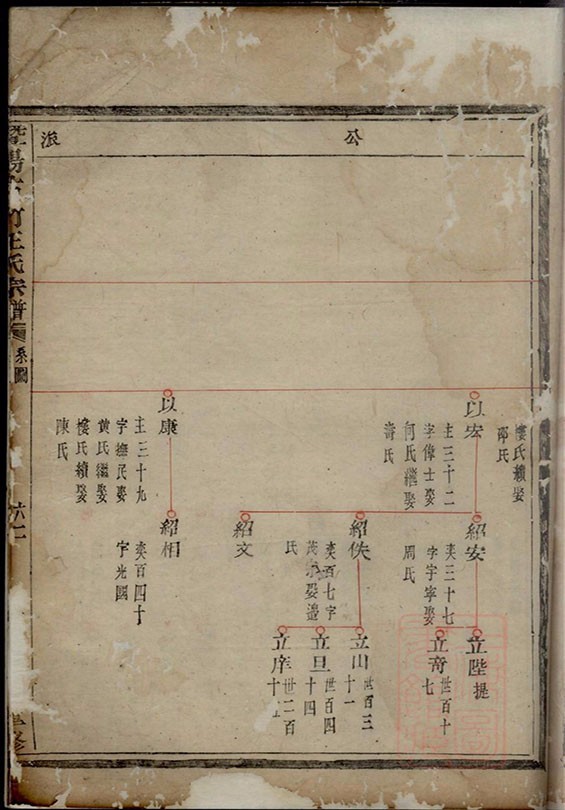 公
派
樓氏續娶
邵氏
以宏
主三十二
字偉士娶
何氏繼娶
壽氏
紹安
奕三十七
字宇寧娶
周氏
立陛
提
立奇
世百十
七
紹佚
奕百七字
娶邊
氏
立山
世百三
十一
立旦
世百四
十四
立庠
世二百
紹文
以康
主三十九
字撫民娶
黃氏繼娶
樓氏續娶
陳氏
紹相
奕百四十
字光國
暨陽
王氏宗譜
系圖